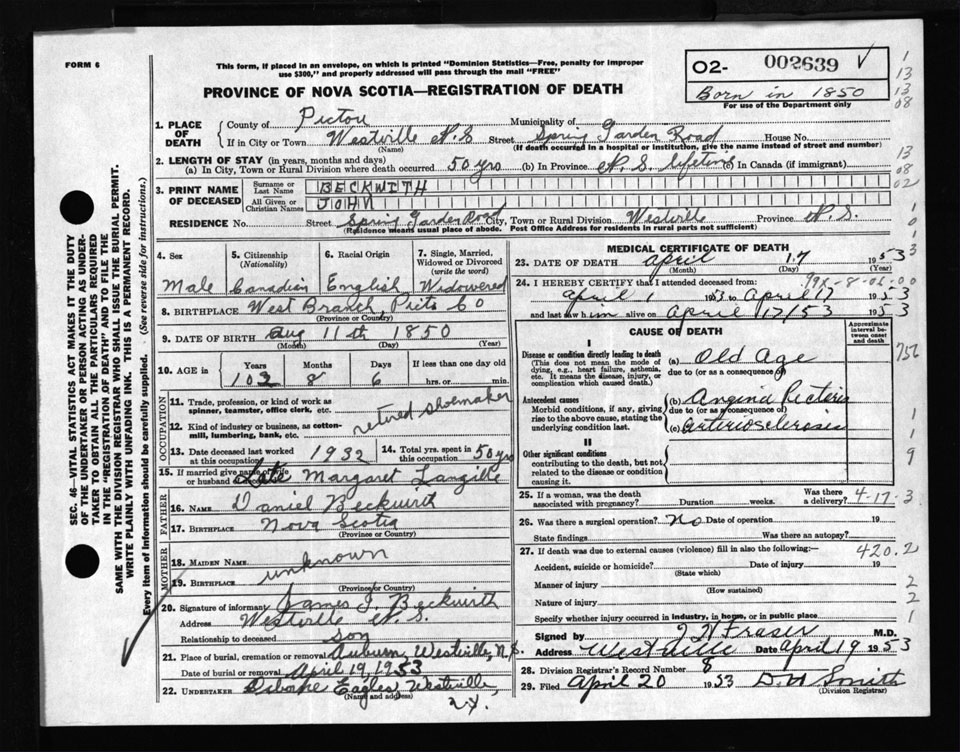 FORM 6
This form, if placed in an envelope, on which is printed "Dominion Statistics—Free, penalty for improper
use $300," and properly addressed will pass through the mail "FREE"
PROVINCE OF NOVA SCOTIA—REGISTRATION OF DEATH
O2- 002639 √
Born in 1850
For use of the Department only
1
13
13
08
13
08
02
1. PLACE OF DEATH
County of Pictou Municipality of
If in City or Town Westville N.S Street Spring Garden Road House No.
(Name) (If death occurred in a hospital or institution, give the name instead of street and number)
2. LENGTH OF STAY (in years, months and days)
(a) In City, Town or Rural Division where death occurred 50 yrs (b) In Province N.S. lifetime (c) In Canada (if immigrant)
3. PRINT NAME OF DECEASED
Surname or Last Name BECKWITH
All Given or Christian Names JOHN
RESIDENCE No. Street Spring Garden Road City, Town or Rural Division Westville Province N.S.
(Residence means usual place of abode. Post Office Address for residents in rural parts not sufficient)
4. Sex 5. Citizenship (Nationality) 6. Racial Origin 7. Single, Married, Widowed or Divorced (write the word)
Male Canadian English Widowered
8. BIRTHPLACE West Branch Picto Co
(Province or Country)
9. DATE OF BIRTH Aug 11th 1850
(Month) (Day) (Year)
10. AGE in Years Months Days If less than one day old
102 8 6 hrs. or min.
OCCUPATION
11. Trade, profession, or kind of work as spinner, teamster, office clerk, etc.
retired shoemaker
12. Kind of industry or business, as cotton-mill, lumbering, bank, etc.
13. Date deceased last worked at this occupation 1932 14. Total yrs. spent in this occupation 50 yrs
15. If married give name of wife or husband Late Margaret Langille
FATHER
16. Name Daniel Beckwith
17. Birthplace Nova Scotia
(Province or Country)
MOTHER
18. Maiden Name unknown
19. Birthplace
(Province or Country)
20. Signature of informant James J. Beckwirth
Address Westville N.S.
Relationship to deceased Son
21. Place of burial, cremation or removal Auburn, Westville, N.S.
Date of burial or removal April 19, 1953
22. UNDERTAKER Osborne Eagles, Westville,
(Name and address)
MEDICAL CERTIFICATE OF DEATH
23. DATE OF DEATH April 17 1953
(Month) (Day) (Year)
24. I HEREBY CERTIFY that I attended deceased from:
April 1 1953 to April 17 1953
and last saw him alive on April 17/53 1953
CAUSE OF DEATH
Approximate interval between onset and death
I
Disease or condition directly leading to death (a) Old Age
(This does not mean the mode of dying, e.g., heart failure, asthenia, etc. It means the disease, injury, or complication which caused death.)
due to (or as a consequence of)
Antecedent causes (b) Angina Pectoris
Morbid conditions, if any, giving rise to the above cause, stating the underlying condition last.
due to (or as a consequence of)
(c) Arteriosclerosis
II
Other significant conditions
contributing to the death, but not related to the disease or condition causing it.
25. If a woman, was the death associated with pregnancy? Duration weeks. Was there a delivery? 4-17-3
26. Was there a surgical operation? No Date of operation 19
State findings Was there an autopsy?
27. If death was due to external causes (violence) fill in also the following: 420.2
Accident, suicide or homicide? Date of injury 19
(State which)
Manner of injury
(How sustained)
Nature of injury
Specify whether injury occurred in industry, in home, or in public place
Signed by J W Fraser M.D.
Address Westville Date April 19 1953
28. Division Registrar's Record Number 8
29. Filed April 20 1953 D.H Smith
(Division Registrar)
SEC. 46—VITAL STATISTICS ACT MAKES IT THE DUTY
OF THE UNDERTAKER OR PERSON ACTING AS UNDER-
TAKER TO OBTAIN ALL THE PARTICULARS REQUIRED
IN THE "REGISTRATION OF DEATH" AND TO FILE THE
SAME WITH THE DIVISION REGISTRAR WHO SHALL ISSUE THE BURIAL PERMIT.
WRITE PLAINLY WITH UNFADING INK. THIS IS A PERMANENT RECORD.
Every item of information should be carefully supplied. (See reverse side for instructions.)